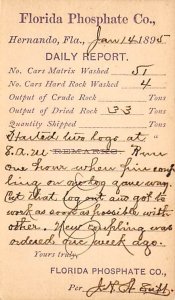 Florida Phosphate Co.,
Hernando, Fla., Jan 14 1895
DAILY REPORT.
No. Cars Matrix Washed 51
No. Cars Hard Rock Washed 4
Output of Crude Rock Tons
Output of Dried Rock 33 Tons
Quantity Shipped Tons
Started two logs at
8 a.m. REMARKS. Run
one hour when pin coup
ling on one log gave way.
Cut that log out and got to
work as soon as possible with
other. New coupling was
ordered one week ago.
Yours truly,
FLORIDA PHOSPHATE CO.,
Per